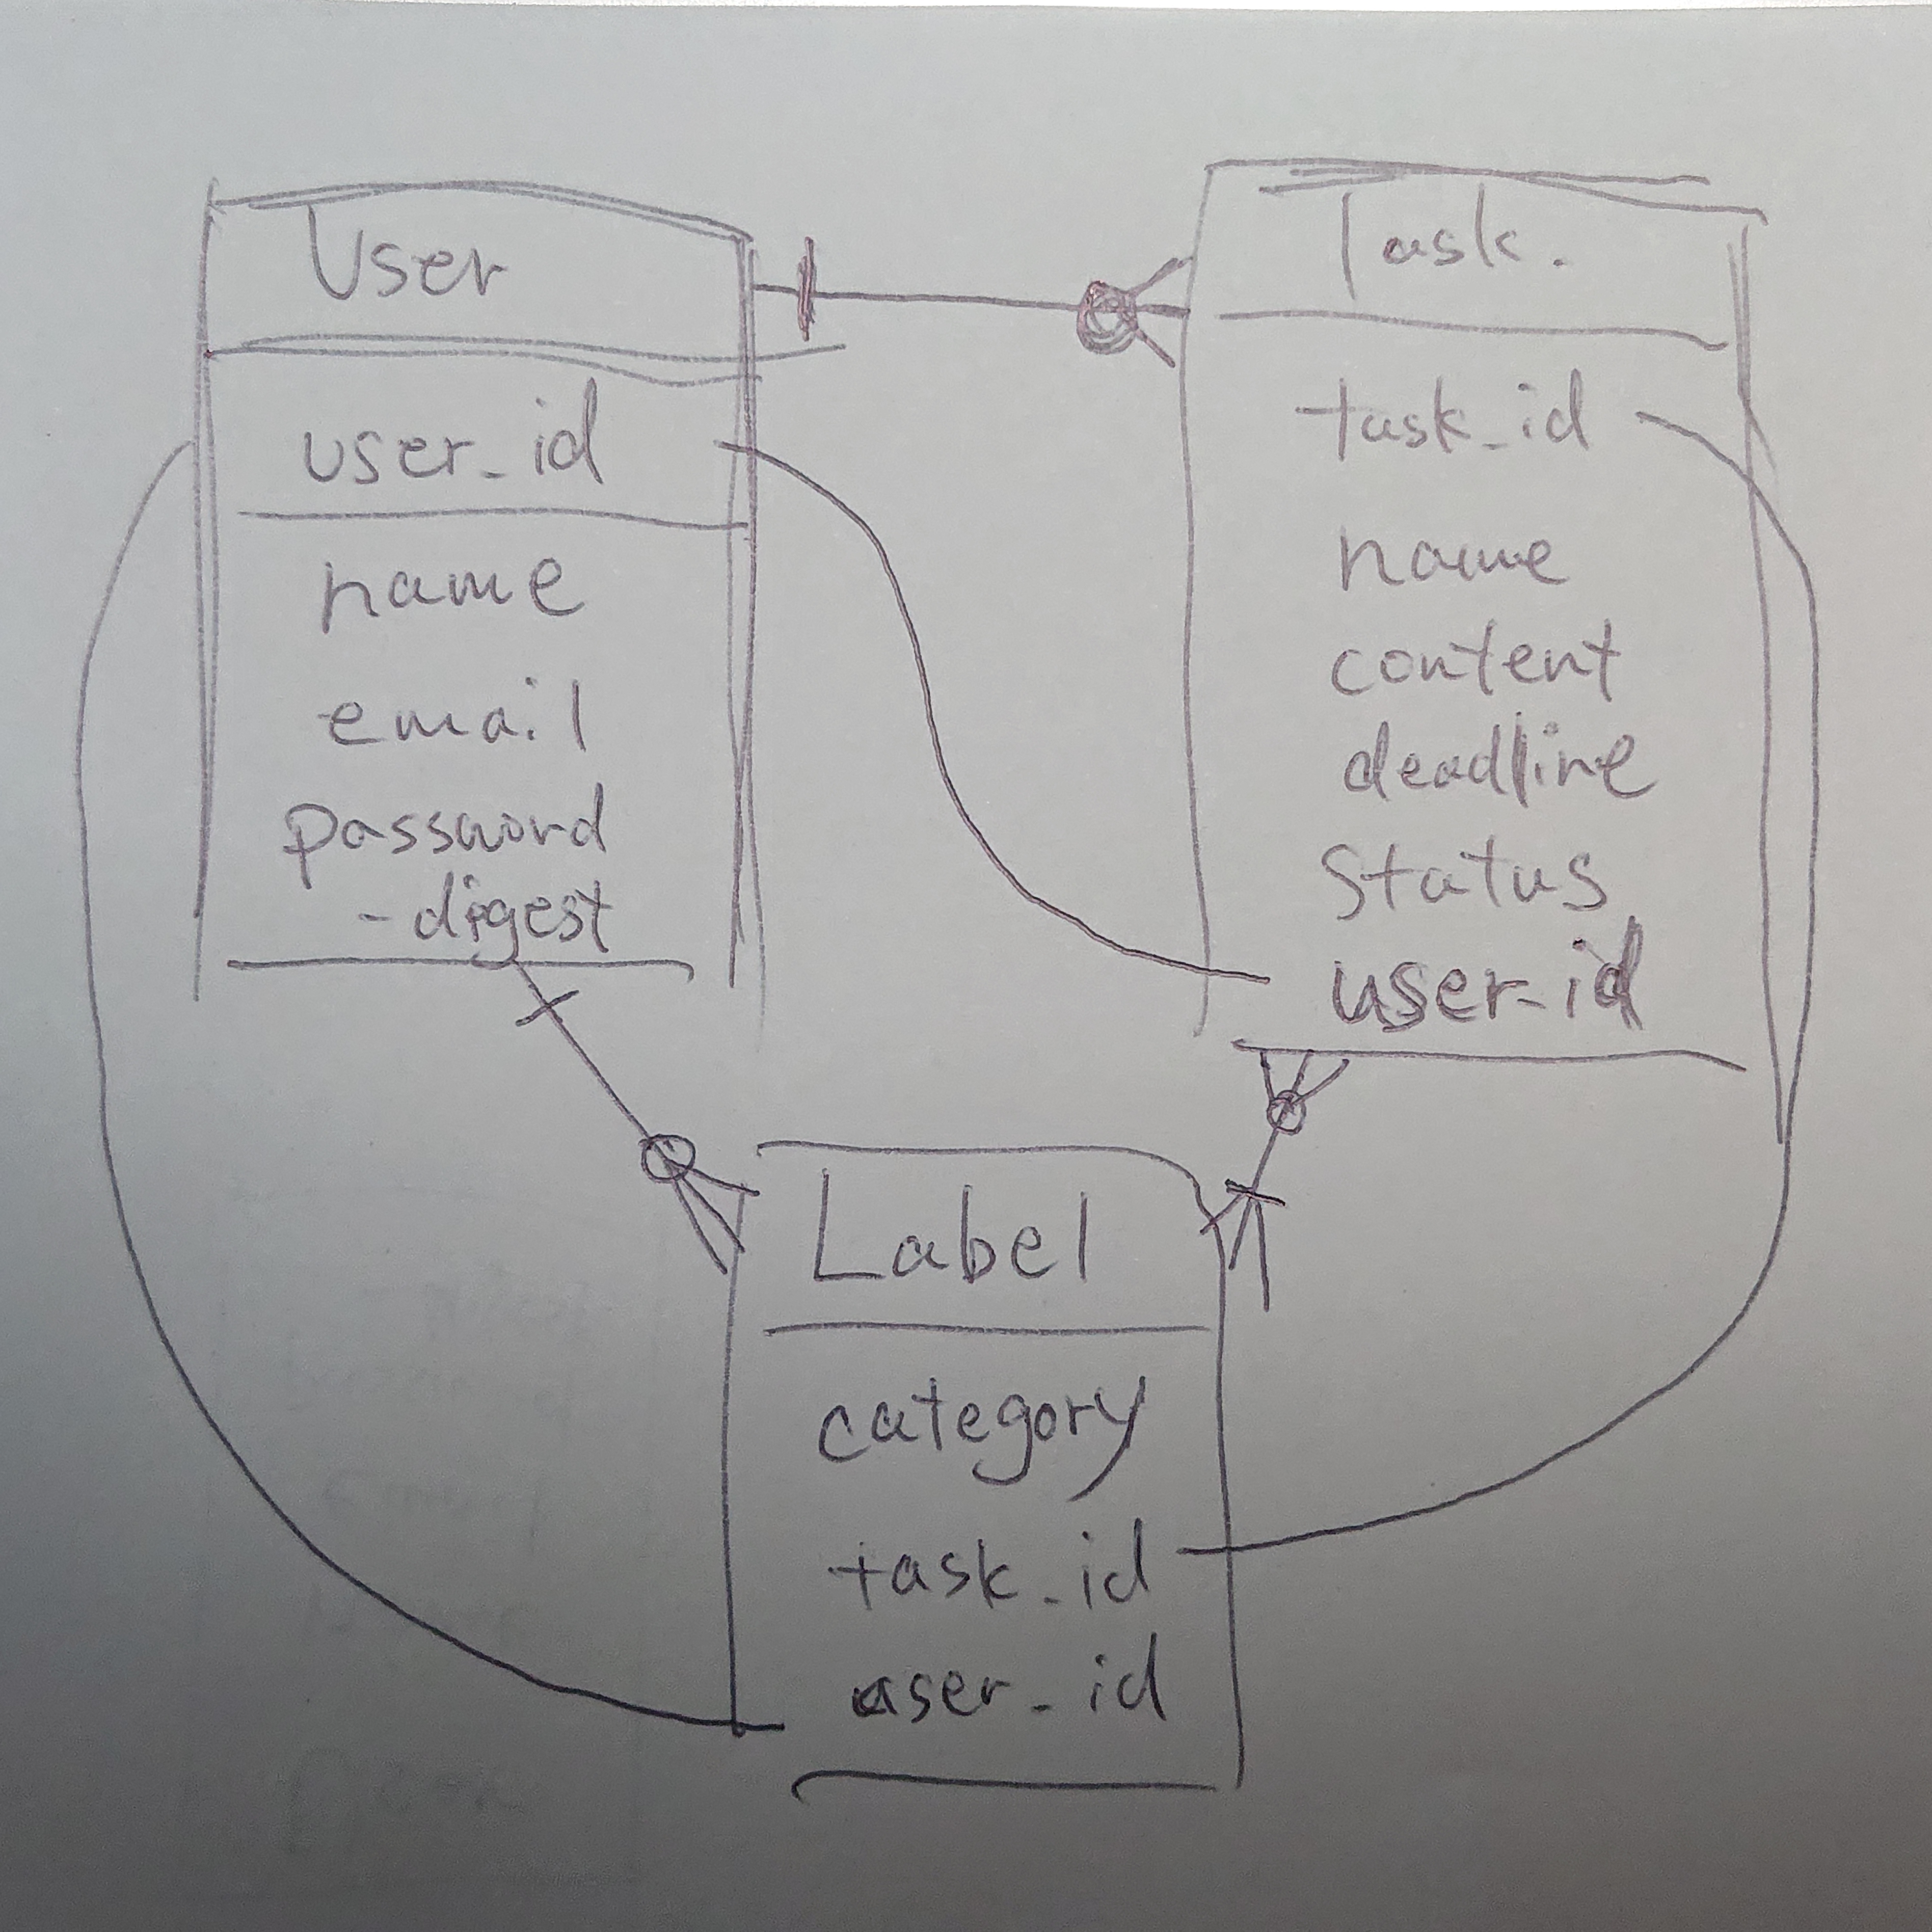 User
user_id
name
email
password
-digest
Task.
task_id
name
content
deadline
status
user-id
Label
category
task_id
user_id